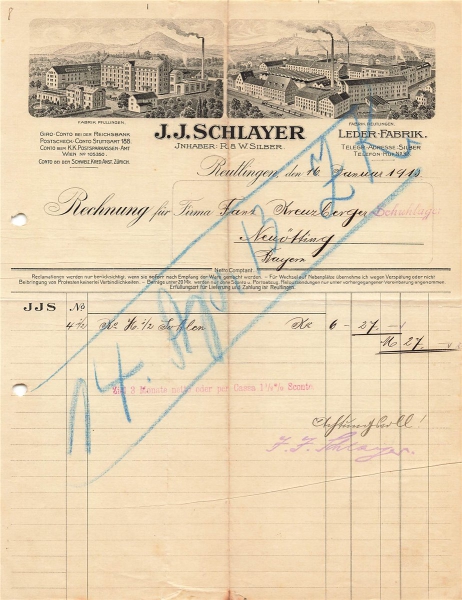 FABRIK PFULLINGEN.
FABRIK REUTLINGEN.
GIRO-CONTO BEI DER REICHSBANK
POSTSCHECK-CONTO STUTTGART 188.
CONTO BEIM K.K. POSTSPARKASSEN-AMT
WIEN No 105350.
CONTO BEI DER SCHWEIZ. KREDIT-ANST. ZÜRICH.
J.J. SCHLAYER
JNHABER: R. & W. SILBER.
LEDER-FABRIK.
TELEGR.-ADRESSE: SILBER
TELEFON RUF
Reutlingen, den 16 Januar 1913.
Rechnung für Firma Hans Kreuzberger
Neuötting
Bayern
Netto Comptant.
Reklamationen werden nur berücksichtigt, wenn sie sofort nach Empfang der Ware gemacht werden. – Für Wechsel auf Nebenplätze übernehme ich wegen Verspätung oder nicht
Beibringung von Protesten keinerlei Verbindlichkeiten. –
Erfüllungsort für Lieferung und Zahlung ist Reutlingen.
JJS No
4 1/2 Ko H. 1/2 Sohlen Ko 6 - 27. -
M 27. -
14. April 13
Ziel 3 Monate netto oder per Cassa 1½% Sconto
Achtungsvoll!
J. J. Schlayer.